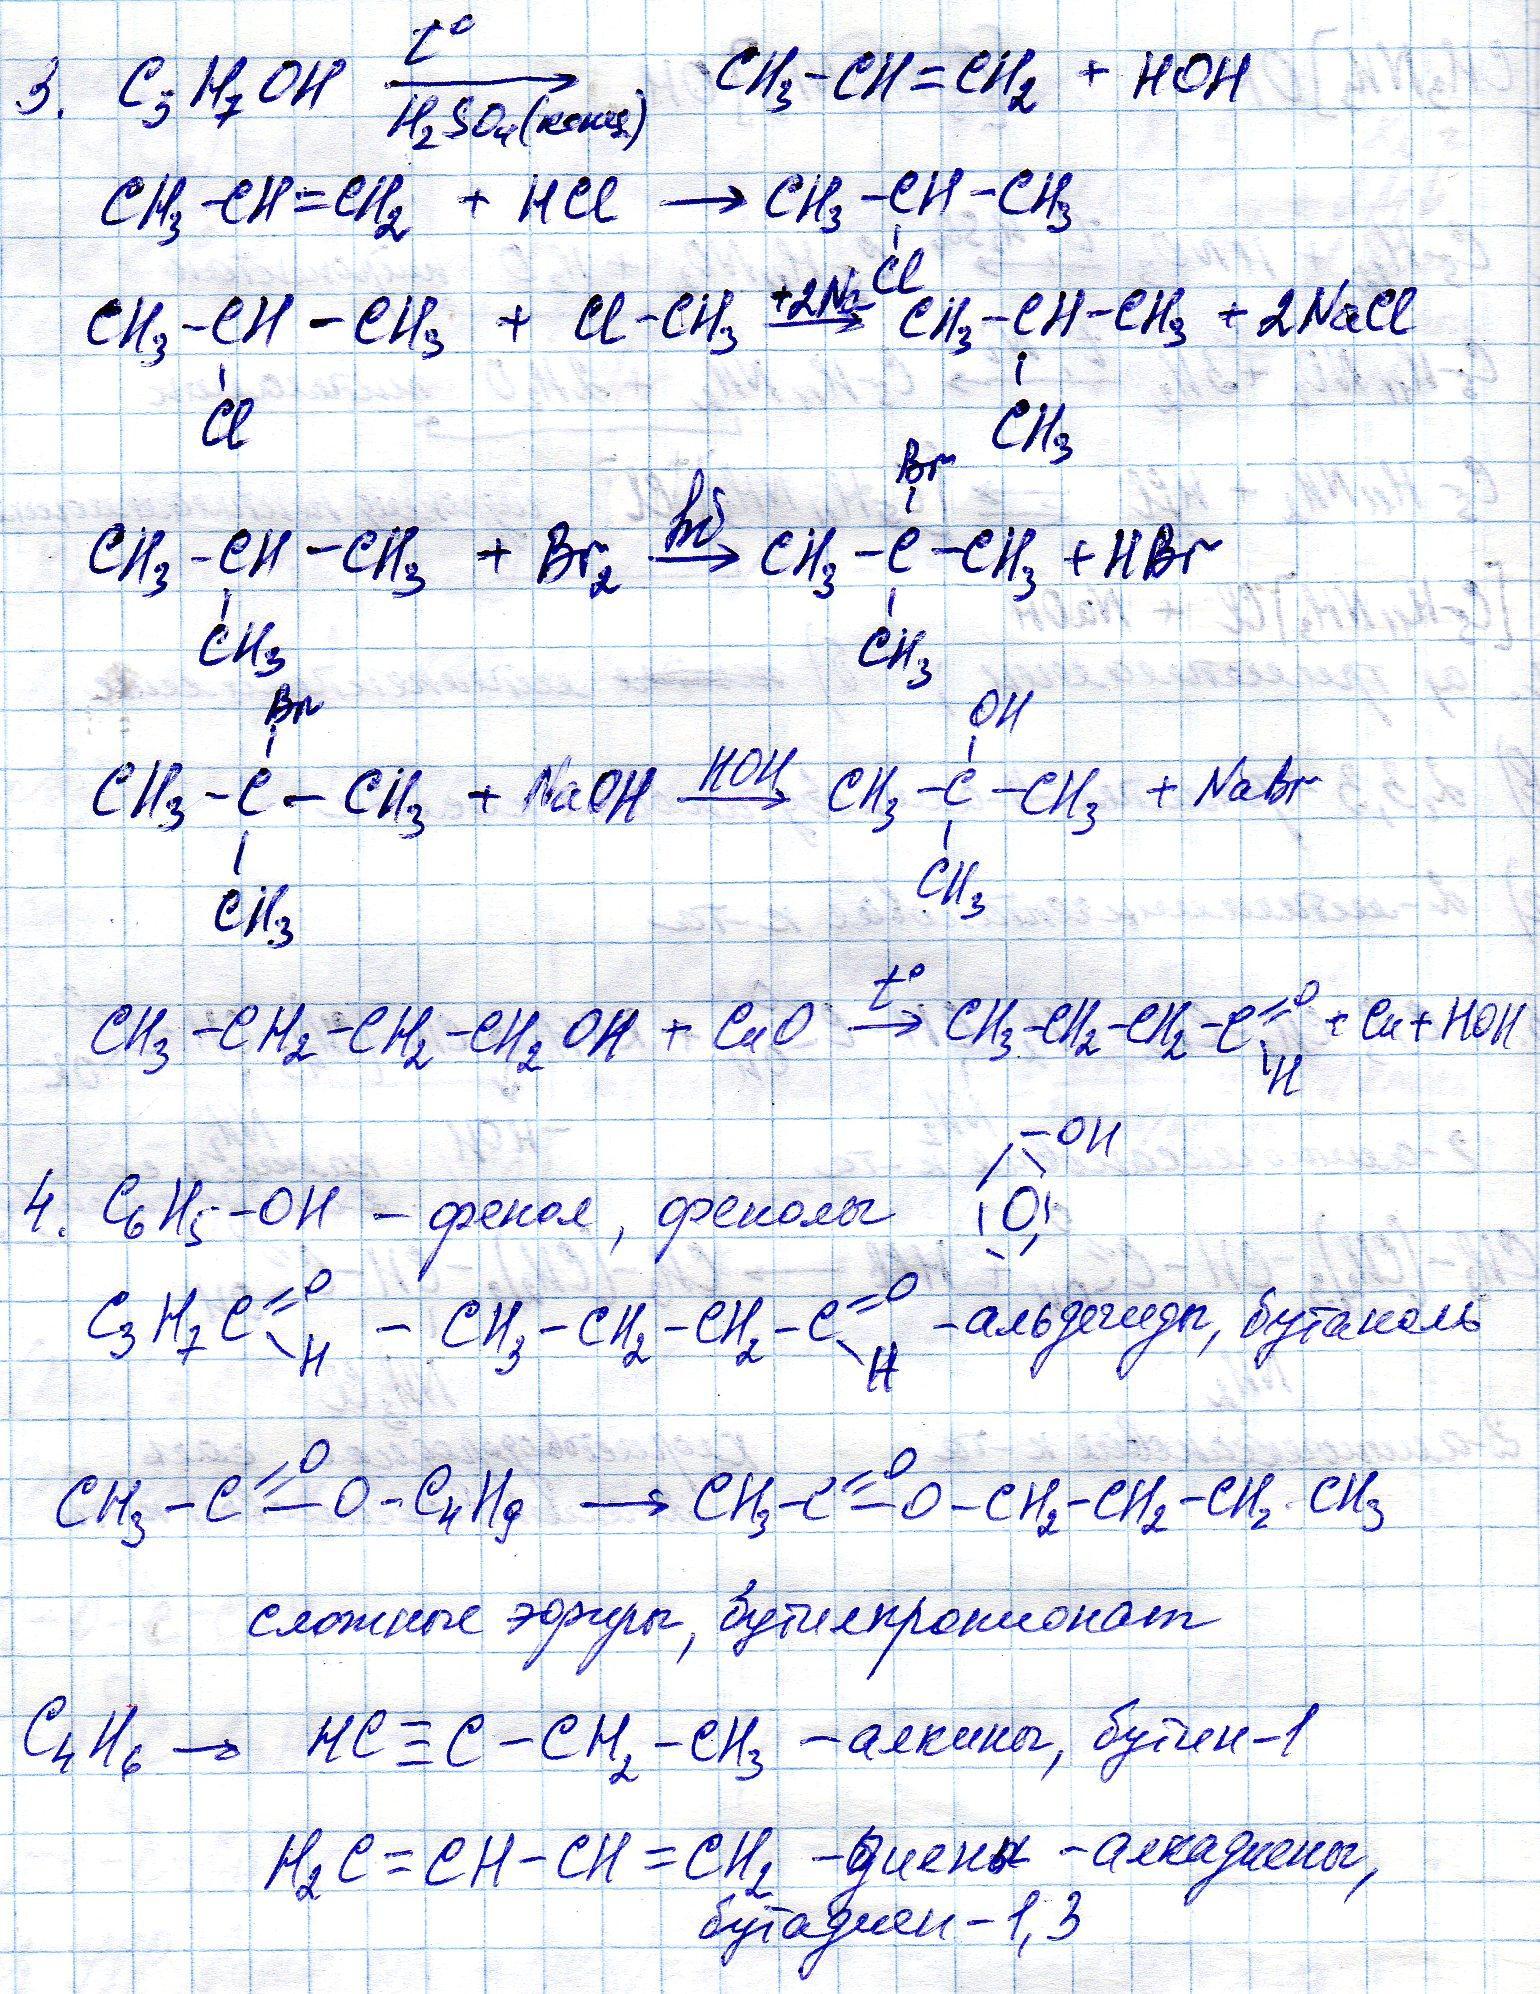 3. C3H7OH t° H2SO4(конц) → CH3-CH=CH2 + HOH
CH3-CH=CH2 + HCl → CH3-CH-CH3
Cl
CH3-CH-CH3 + Cl-CH3 +2Na → CH3-CH-CH3 + 2NaCl
Cl CH3
Br
CH3-CH-CH3 + Br2 hν → CH3-C-CH3 + HBr
CH3 CH3
Br OH
CH3-C-CH3 + NaOH HOH → CH3-C-CH3 + NaBr
CH3 CH3
CH3-CH2-CH2-CH2OH + CuO t° → CH3-CH2-CH2-C=O H + Cu + HOH
OH
4. C6H5-OH - фенол, фенолы
C3H7C=O H - CH3-CH2-CH2-C=O H - альдегиды, бутаналь
CH3-C=O-O-C4H9 → CH3-C=O-O-CH2-CH2-CH2-CH3
сложные эфиры, бутилпропионат
C4H6 → HC≡C-CH2-CH3 - алкины, бутин-1
H2C=CH-CH=CH2 - диены - алкадиены,
бутадиен-1,3